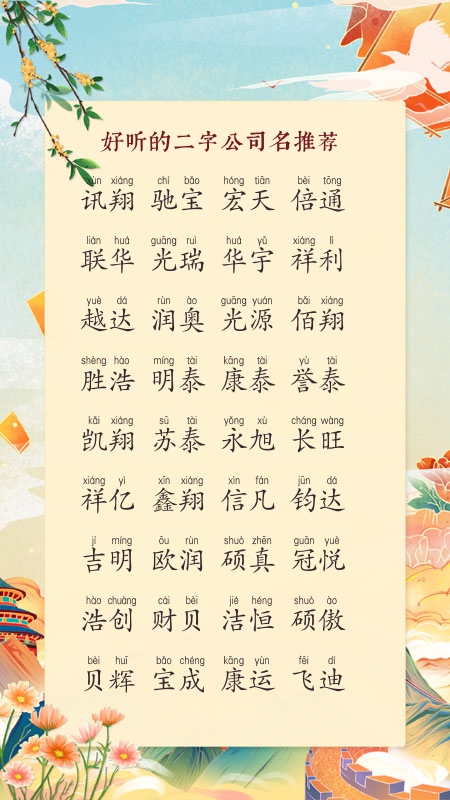 好听的二字公司名推荐
xùn xiáng chí bǎo hóng tiān bèi tōng
讯翔 驰宝 宏天 倍通
lián huá guāng ruì huá yǔ xiáng lì
联华 光瑞 华宇 祥利
yuè dá rùn ào guāng yuán bǎi xiáng
越达 润奥 光源 佰翔
shèng hào míng tài kāng tài yù tài
胜浩 明泰 康泰 誉泰
kǎi xiáng sū tài yǒng xù cháng wàng
凯翔 苏泰 永旭 长旺
xiáng yì xīn xiáng xìn fán jūn dá
祥亿 鑫翔 信凡 钧达
jí míng ōu rùn shuò zhēn guān yuè
吉明 欧润 硕真 冠悦
hào chuàng cái bèi jié héng shuò ào
浩创 财贝 洁恒 硕傲
bèi huī bǎo chéng kāng yùn fēi dí
贝辉 宝成 康运 飞迪